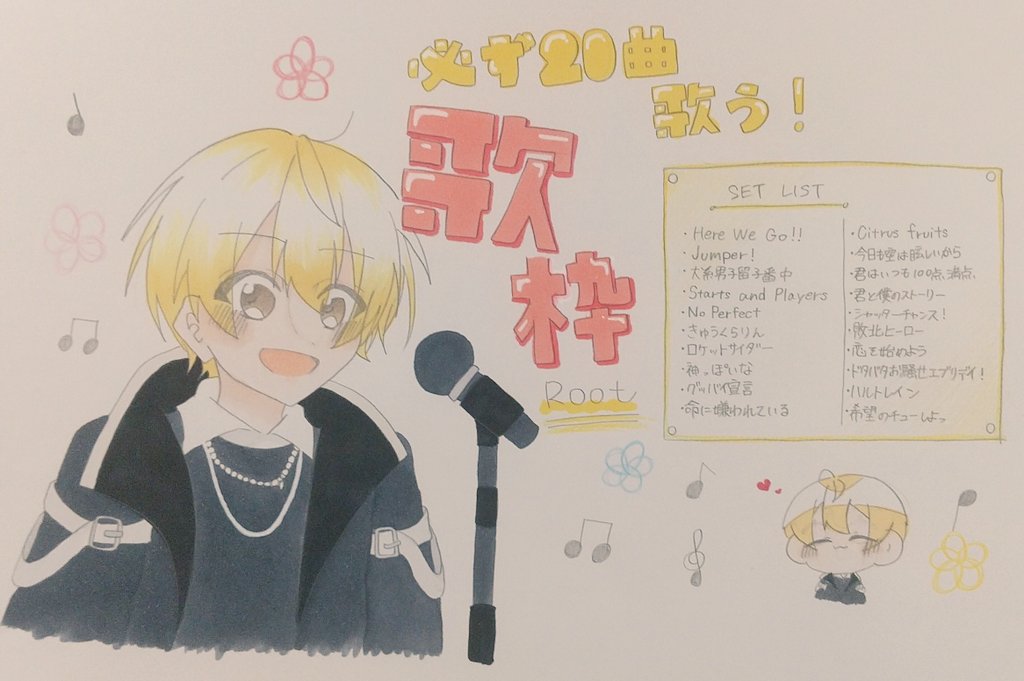 必ず20曲
歌う!
歌
枠
Root
SET LIST
・Here We Go!!
・Jumper!
・大系男子留子番中
・Starts and Players
・No Perfect
・きゅうくらりん
・ロケットサイダー
・神っぽいな
・グッバイ宣言
・命に嫌われている
・Citrus fruits
・今日も空は眩しいから
・君はいつも100点満点
・君と僕のストーリー
・シャッターチャンス!
・敗北ヒーロー
・恋を始めよう
・ドタバタお騒がせエブリデイ!
・ハルトレイン
・希望のチューしよっ